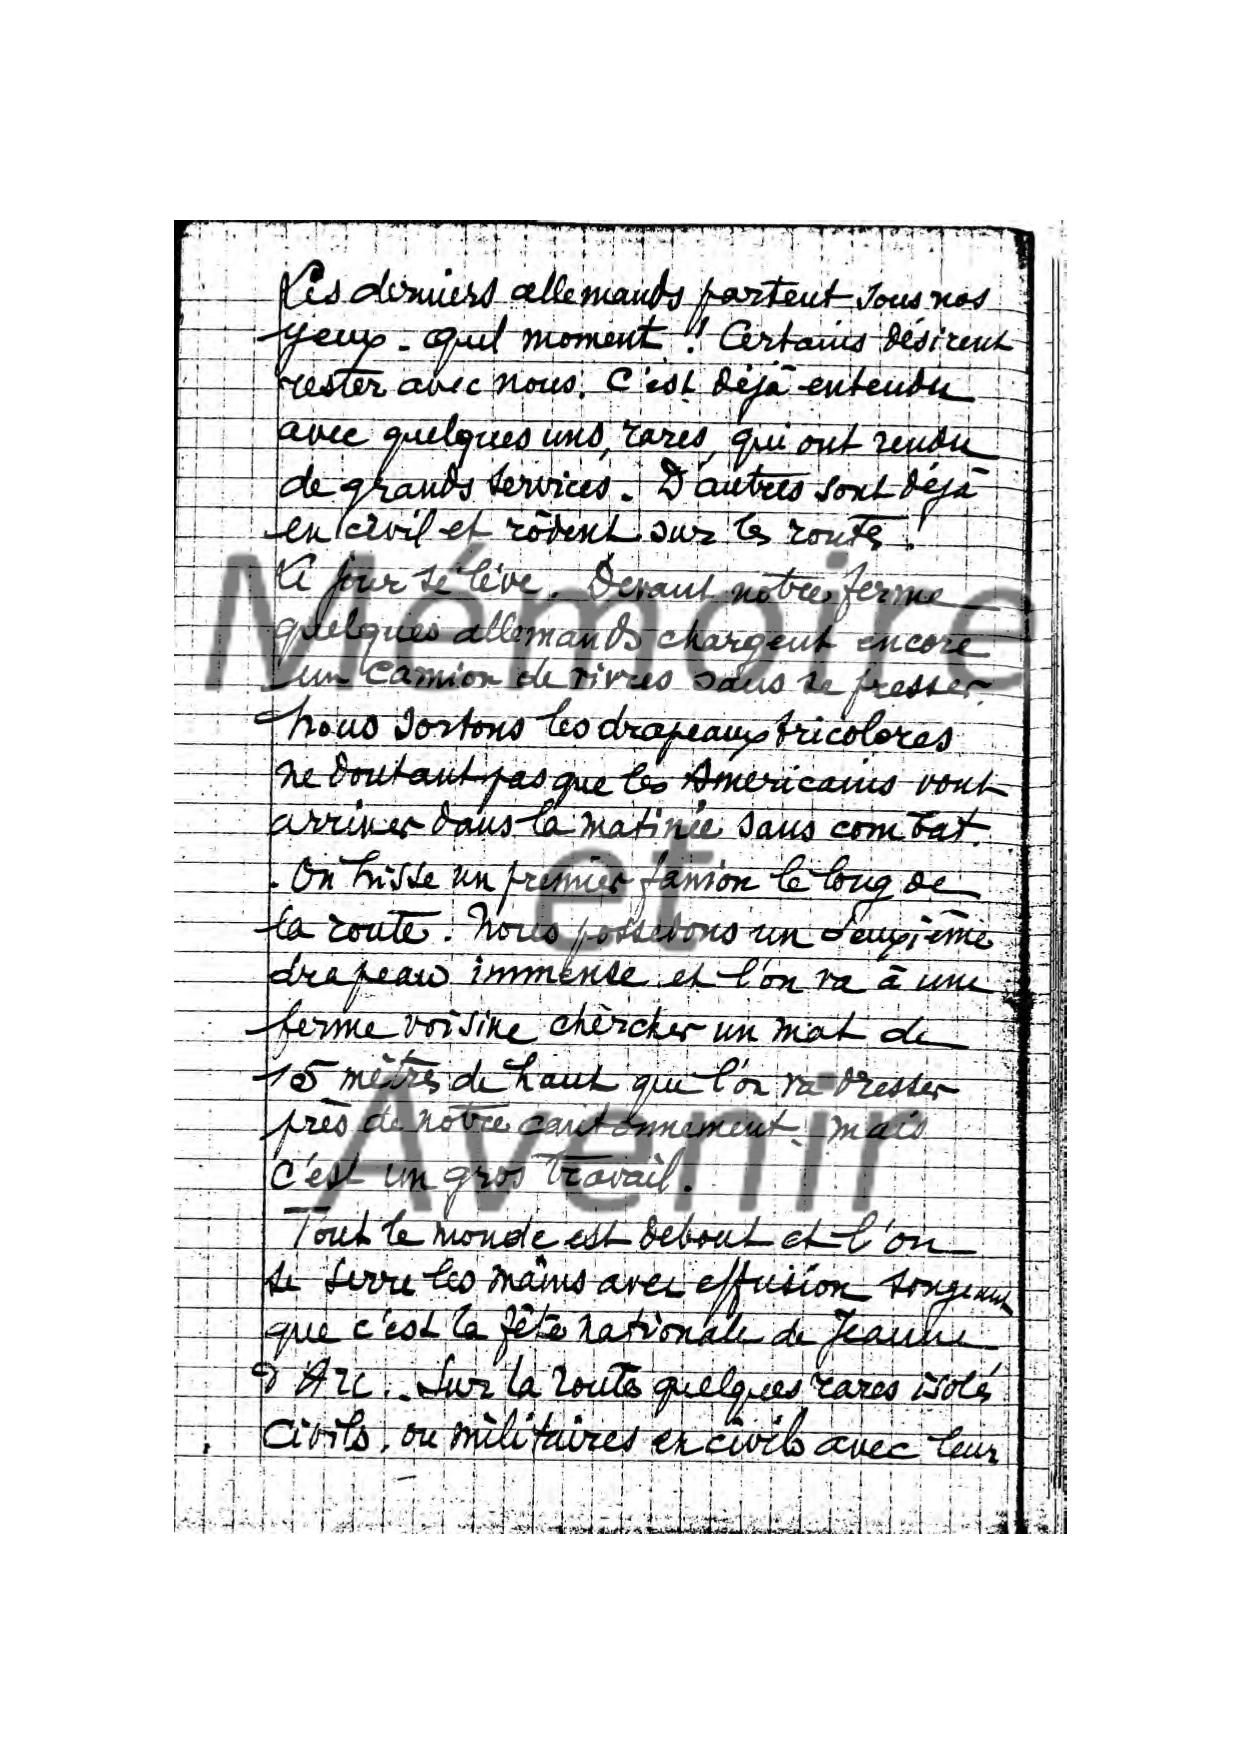 Les derniers allemands partent sous nos
yeux - quel moment ! Certains désirent
rester avec nous. C'est déjà entendu
avec quelques uns, rares, qui ont rendu
de grands services. D'autres sont déjà
en civil et rôdent sur les routes.
Le jour se lève. Devant notre ferme
quelques allemands chargent encore
un camion de vivres sans se presser
Nous sortons les drapeaux tricolores
ne doutant pas que les Américains vont
arriver dans la matinée sans combat.
. On hisse un premier fanion le long de
la route. Nous possédons un deuxième
drapeau immense et l'on va à une
ferme voisine chercher un mat de
15 mètres de haut que l'on va dresser
près de notre cantonnement, mais
c'est un gros travail.
Tout le monde est debout et l'on
se serre les mains avec effusion songeant
que c'est la fête nationale de Jeanne
d'Arc. Sur la route quelques rares isolés
civils, ou militaires en civils avec leur
Mémoire
et
Avenir